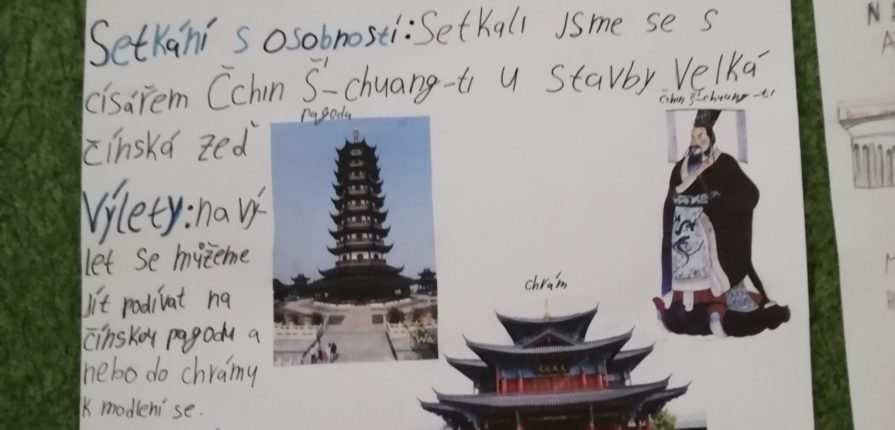 Setkání s osobností: Setkali jsme se s
císářem Čchin Š'-chuang-ti u stavby Velká
čínská zeď
pagoda
čchin š'-chuang-ti
Výlety: na vý-
let se můžeme
jít podívat na
čínskou pagodu a
nebo do chrámy
k modlení se.
chrám